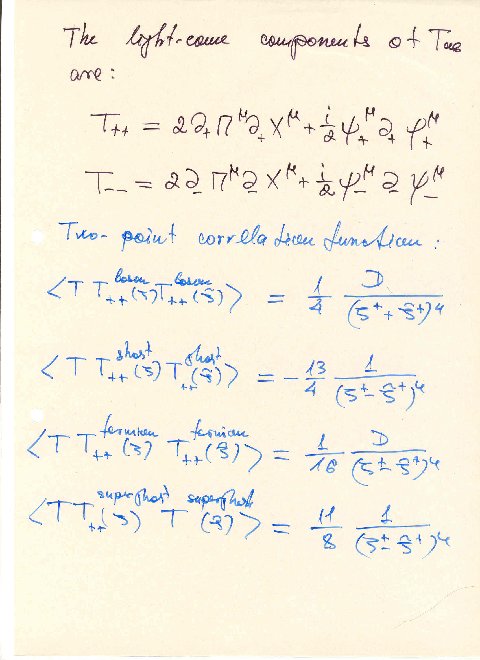 The light-cone components of Tαβ
are:
T₊₊ = 2∂₊Π^μ ∂₊X^μ + i/2 ψ₊^μ ∂₊ ψ₊^μ
T₋₋ = 2∂₋Π^μ ∂₋X^μ + i/2 ψ₋^μ ∂₋ ψ₋^μ
Two-point correlation function:
⟨T T₊₊^boson(ξ) T₊₊^boson(ξ̃)⟩ = 1/4 D/(ξ⁺ + ξ̃⁺)⁴
⟨T T₊₊^ghost(ξ) T₊₊^ghost(ξ̃)⟩ = -13/4 1/(ξ⁺ - ξ̃⁺)⁴
⟨T T₊₊^fermion(ξ) T₊₊^fermion(ξ̃)⟩ = 1/16 D/(ξ⁺ - ξ̃⁺)⁴
⟨T T₊₊^superghost(ξ) T^superghost(ξ̃)⟩ = 11/8 1/(ξ⁺ - ξ̃⁺)⁴